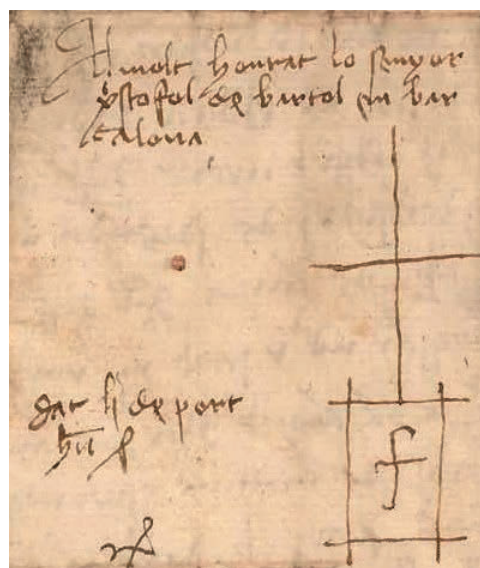 Al molt honrat lo senyor
xpstofol de bartol en bar
calona
dat li de port
hũ
f